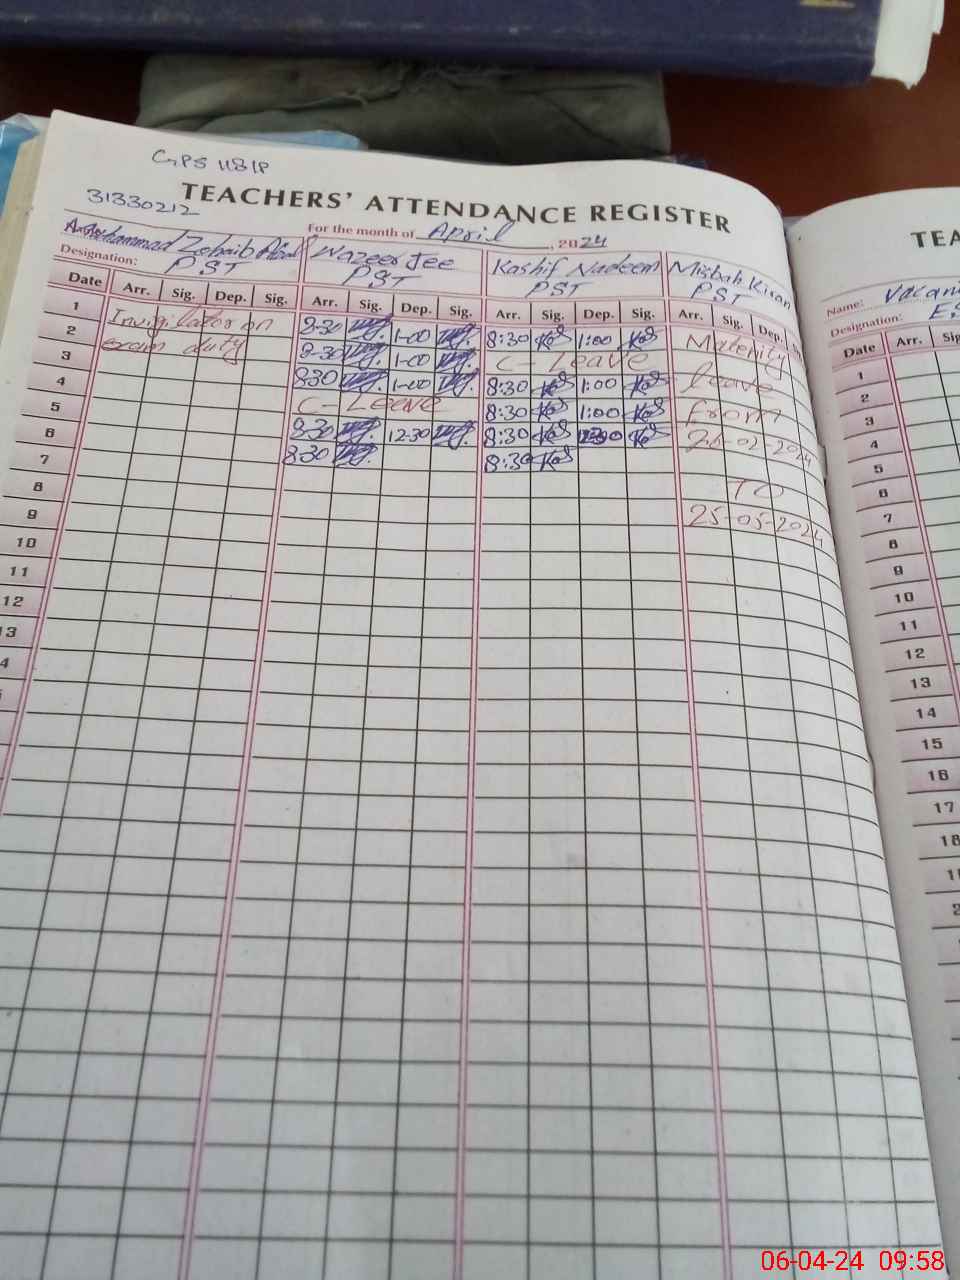 GPS 118 1P
31330212
TEACHERS' ATTENDANCE REGISTER
For the month of April, 2024
Muhammad Zohaib Wazeer Jee Kashif Nadeem Misbah Kiran
Designation: PST PST PST PST
Date Arr. Sig. Dep. Sig. Arr. Sig. Dep. Sig. Arr. Sig. Dep. Sig. Arr. Sig. Dep.
1 Invigilator on 8-30 1-00 8:30 1:00 Maternity
2 exam duty 8-30 1-00 C- Leave
3 8-30 1-00 8:30 1:00 leave
4 C- Leave 8:30 1:00 From
5 8-30 12-30 8:30 26-02-2024
6 8-30 8:30
7 TO
8 25-05-2024
9
10
11
12
13
4
TEA
Name: Vacan
Designation: ES
Date Arr. Sig
1
2
3
4
5
6
7
8
9
10
11
12
13
14
15
16
17
18
06-04-24 09:58